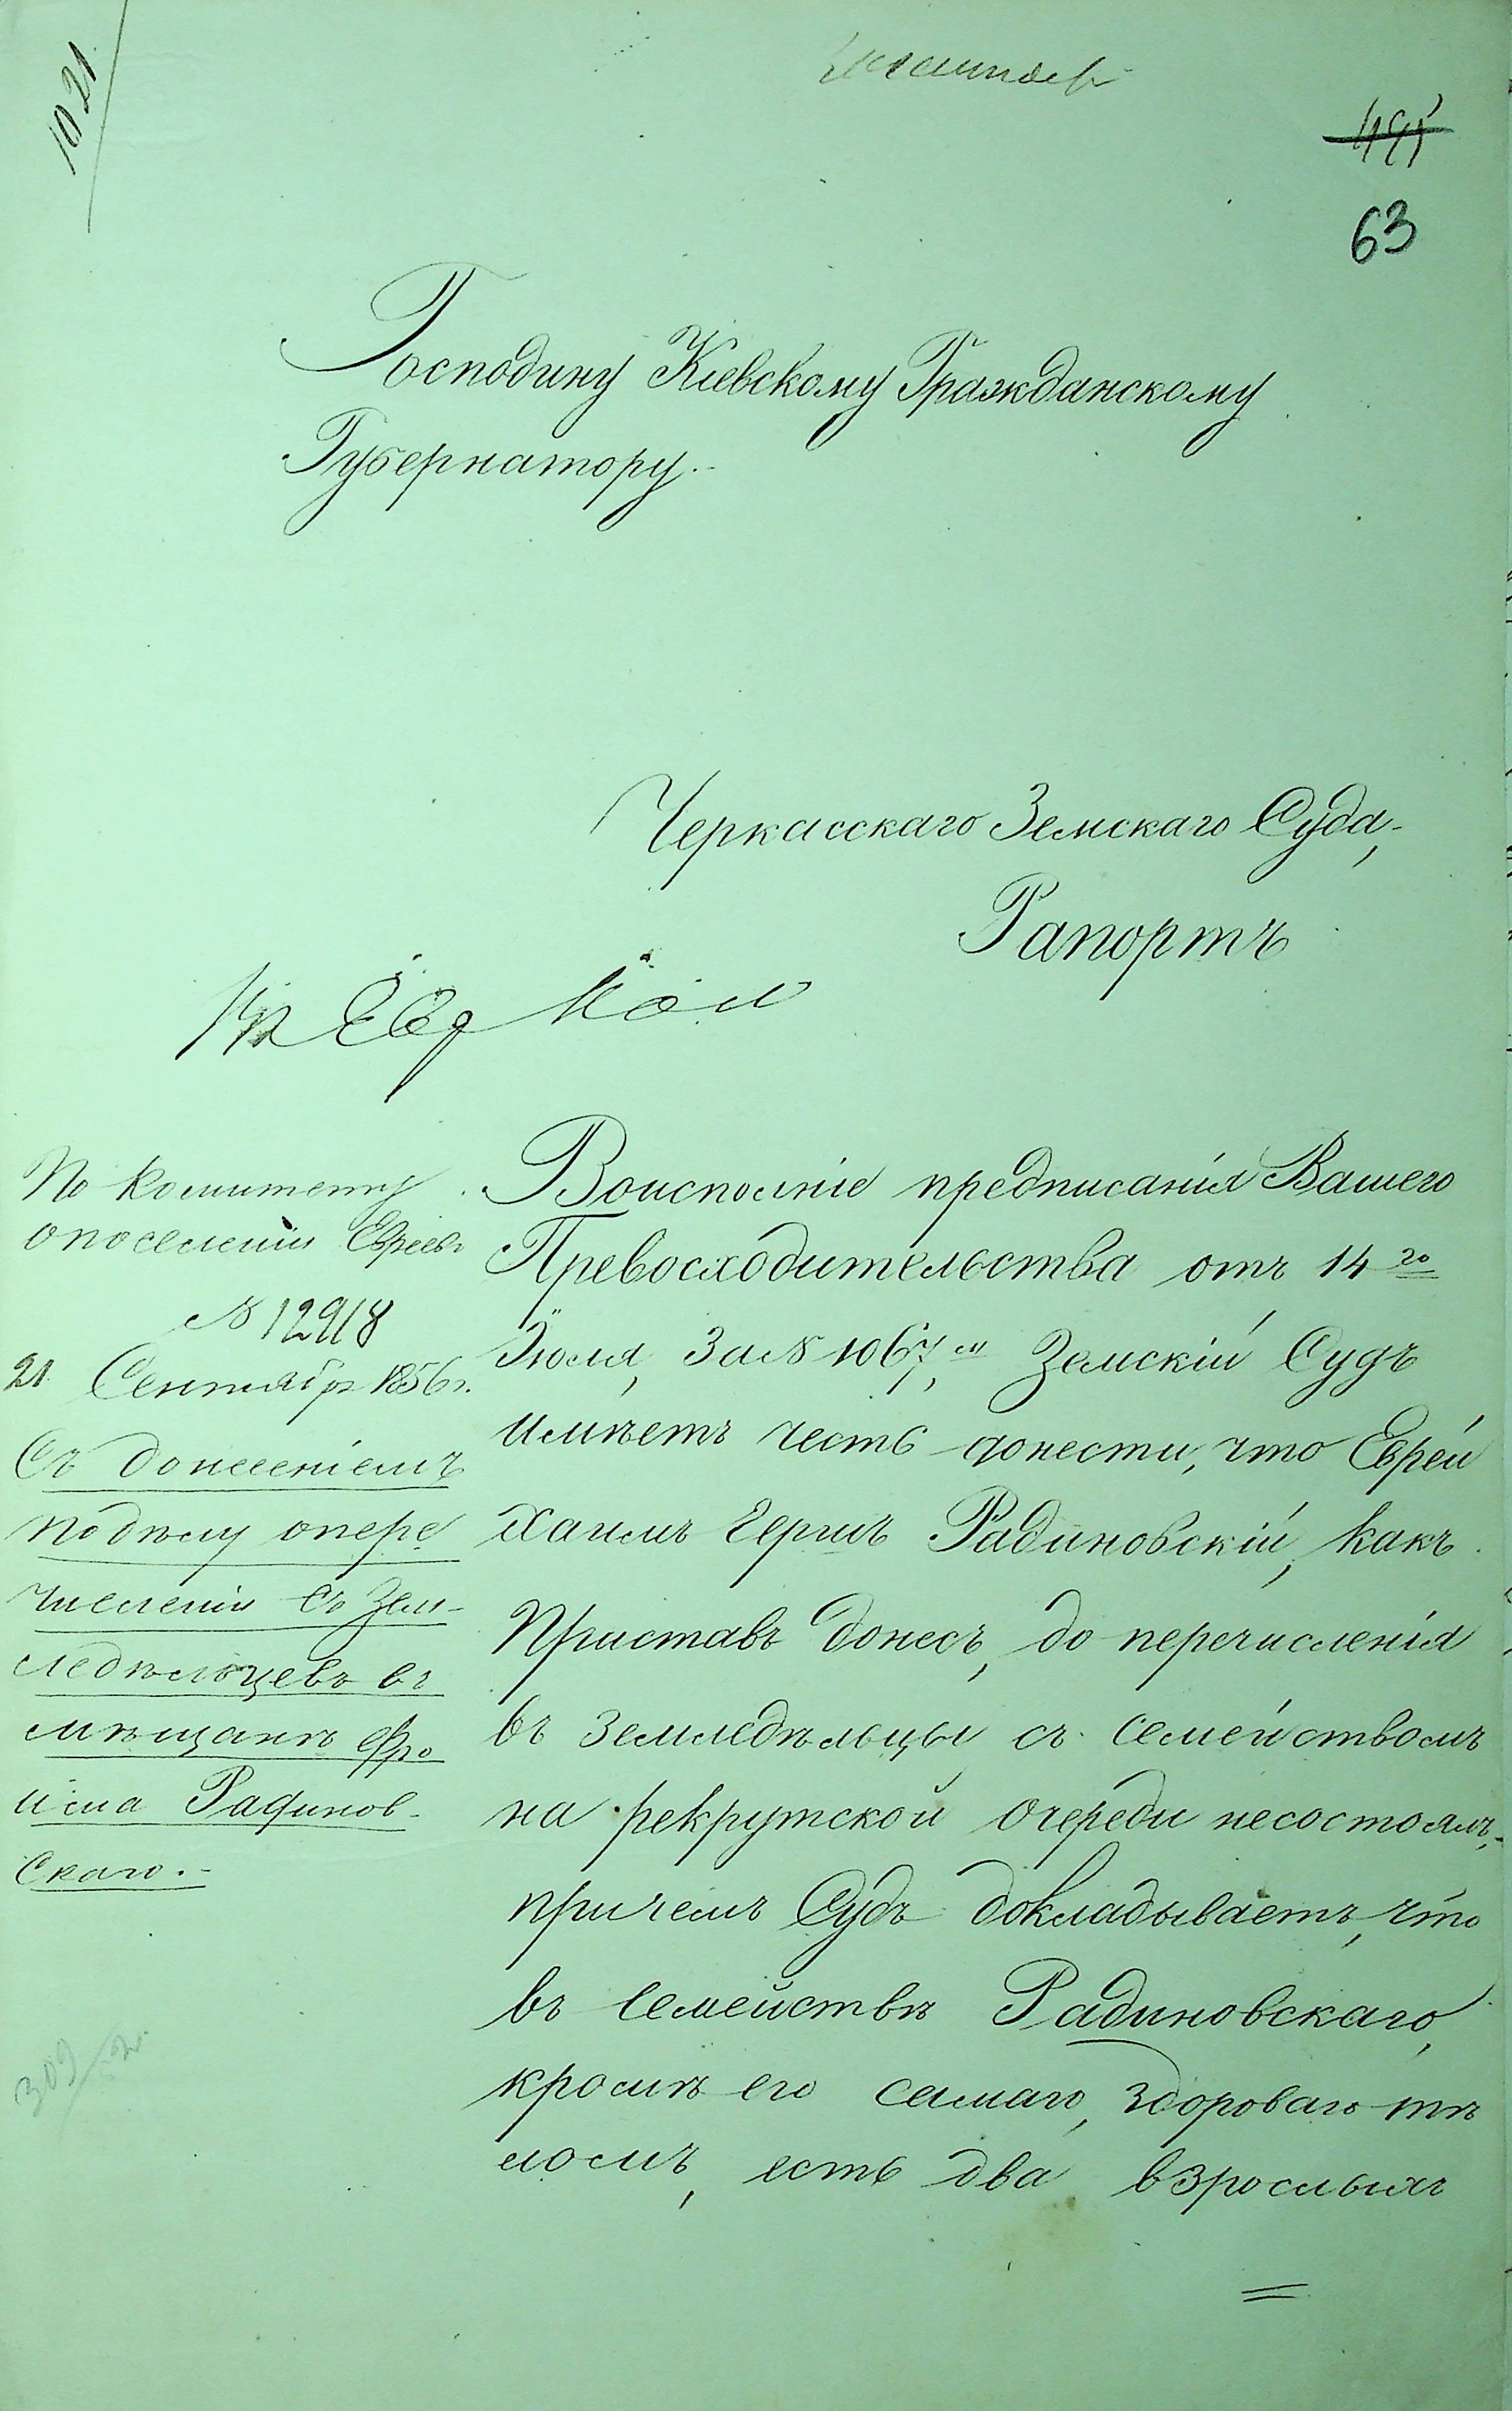 1021
63
Господину Кіевскому Гражданскому
Губернатору.
Черкасскаго Земскаго Суда,
Рапортъ
По Комитету
о поселеніи Евреевъ
№ 12918
21 Сентября 1856 г.
Съ донесеніемъ
по дѣлу опере
численіи съ Зем-
ледѣльцевъ въ
мѣщане
Радинов-
скаго.-
Воисполніе предписанія Вашего
Превосходительства отъ 14го
Іюля, за № 1067, Земскій Судъ
имѣетъ честь донести, что Еврей
Хаимъ Гершъ Радиновскій, какъ
Приставъ донесъ, до перечисленія
въ земледѣльцы съ семействомъ
на рекрутской очереди несостоялъ,-
причемъ Судъ докладываетъ, что
въ семействѣ Радиновскаго,
кромѣ его самаго, здороваго тѣ
ломъ, есть два взрослыхъ